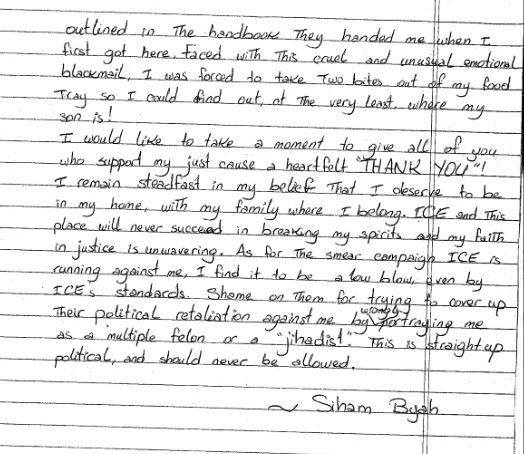 outlined in The handbook They handed me when I
first got here. Faced with This cruel and unusual emotional
blackmail, I was forced to take Two bites out of my food
Tray so I could find out, at The very least, where my
son is!
I would like to take a moment to give all of you
who support my just cause a heartfelt "THANK YOU"!
I remain steadfast in my belief That I deserve to be
in my home, with my family where I belong. ICE and This
place will never succeed in breaking my spirits and my faith
in justice is unwavering. As for The smear campaign ICE is
running against me, I find it to be a low blow, even by
ICE's standards. Shame on Them for trying to cover up
Their political retaliation against me by wrongly portraying me
as a multiple felon or a "jihadist". This is straight up
political, and should never be allowed.
~ Siham Byah